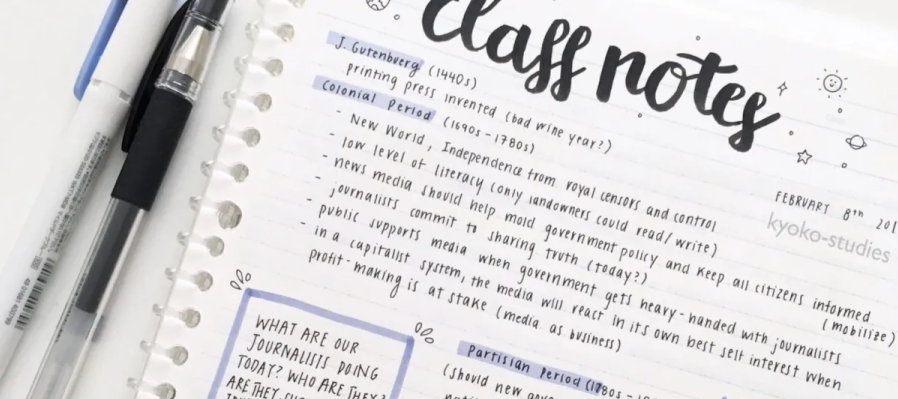 class notes
FEBRUARY 8th 201
kyoko-studies
J. Gutenberg (1440s)
printing press invented (bad wine year?)
Colonial Period (1690s - 1780s)
- New World, Independence from royal censors and control
- low level of literacy (only landowners could read/write)
- news media should help mold government policy and keep all citizens informed
(mobilize)
- journalists commit to sharing truth (today?)
- public supports media when government gets heavy-handed with journalists
- in a capitalist system, the media will react in its own best self interest when
profit-making is at stake (media as business)
WHAT ARE OUR
JOURNALISTS DOING
TODAY? WHO ARE THEY?
ARE THEY
Partisian Period (1780s - 
(should new